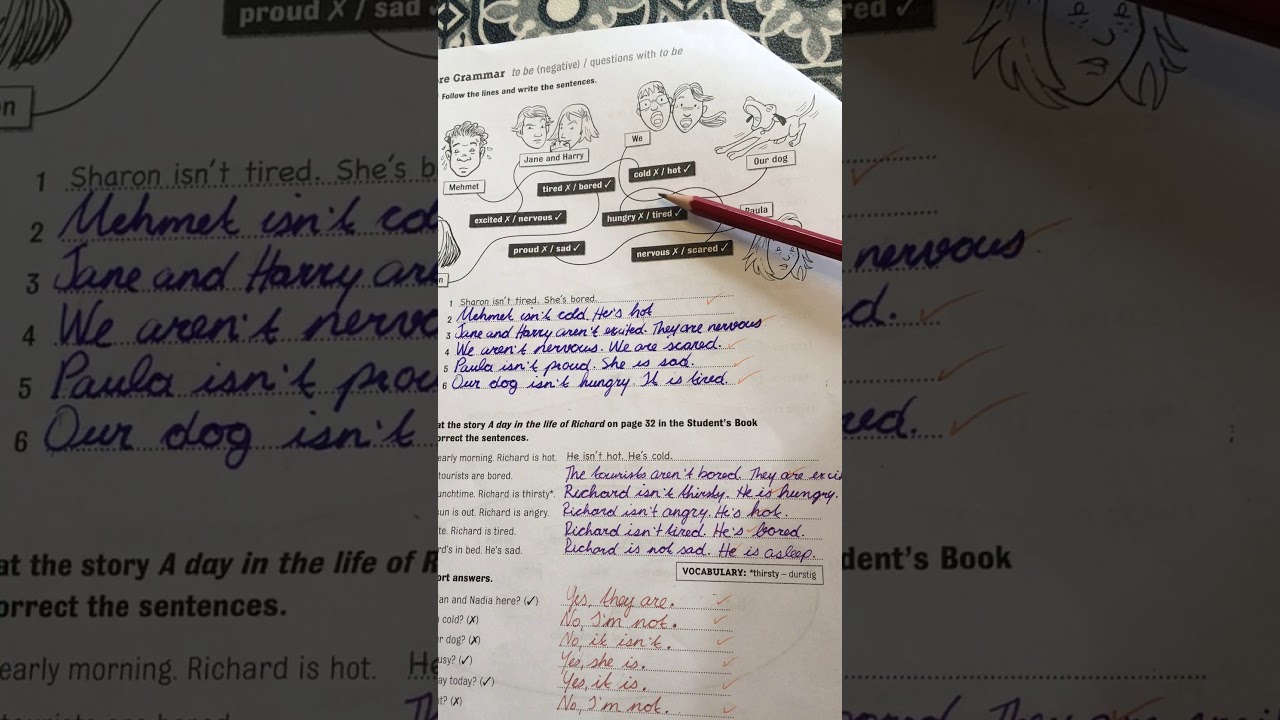 re Grammar to be (negative) / questions with to be
Follow the lines and write the sentences.
We
Jane and Harry
Our dog
Mehmet
cold ✗ / hot ✓
tired ✗ / bored ✓
Paula
excited ✗ / nervous ✓
hungry ✗ / tired ✓
proud ✗ / sad ✓
nervous ✗ / scared ✓
n
1 Sharon isn't tired. She's bored.
2 Mehmet isn't cold. He's hot
3 Jane and Harry aren't excited. They are nervous
4 We aren't nervous. We are scared.
5 Paula isn't proud. She is sad.
6 Our dog isn't hungry. It is tired.
at the story A day in the life of Richard on page 32 in the Student's Book
orrect the sentences.
early morning. Richard is hot. He isn't hot. He's cold.
tourists are bored. The tourists aren't bored. They are exci
unchtime. Richard is thirsty*. Richard isn't thirsty. He is hungry.
un is out. Richard is angry. Richard isn't angry. He's hot.
te. Richard is tired. Richard isn't tired. He's bored.
rd's in bed. He's sad. Richard is not sad. He is asleep.
VOCABULARY: *thirsty – durstig
ort answers.
an and Nadia here? (✓) Yes, they are.
cold? (✗) No, I'm not.
r dog? (✗) No, it isn't.
usy? (✓) Yes, she is.
ay today? (✓) Yes, it is.
t? (✗) No, I'm not.
proud ✗ / sad
red ✓
on
1 Sharon isn't tired. She's b
2 Mehmet isn't co
3 Jane and Harry are
nervous
4 We aren't nervo
d.
5 Paula isn't prou
6 Our dog isn't
red.
at the story A day in the life of R
dent's Book
orrect the sentences.
early morning. Richard is hot. He